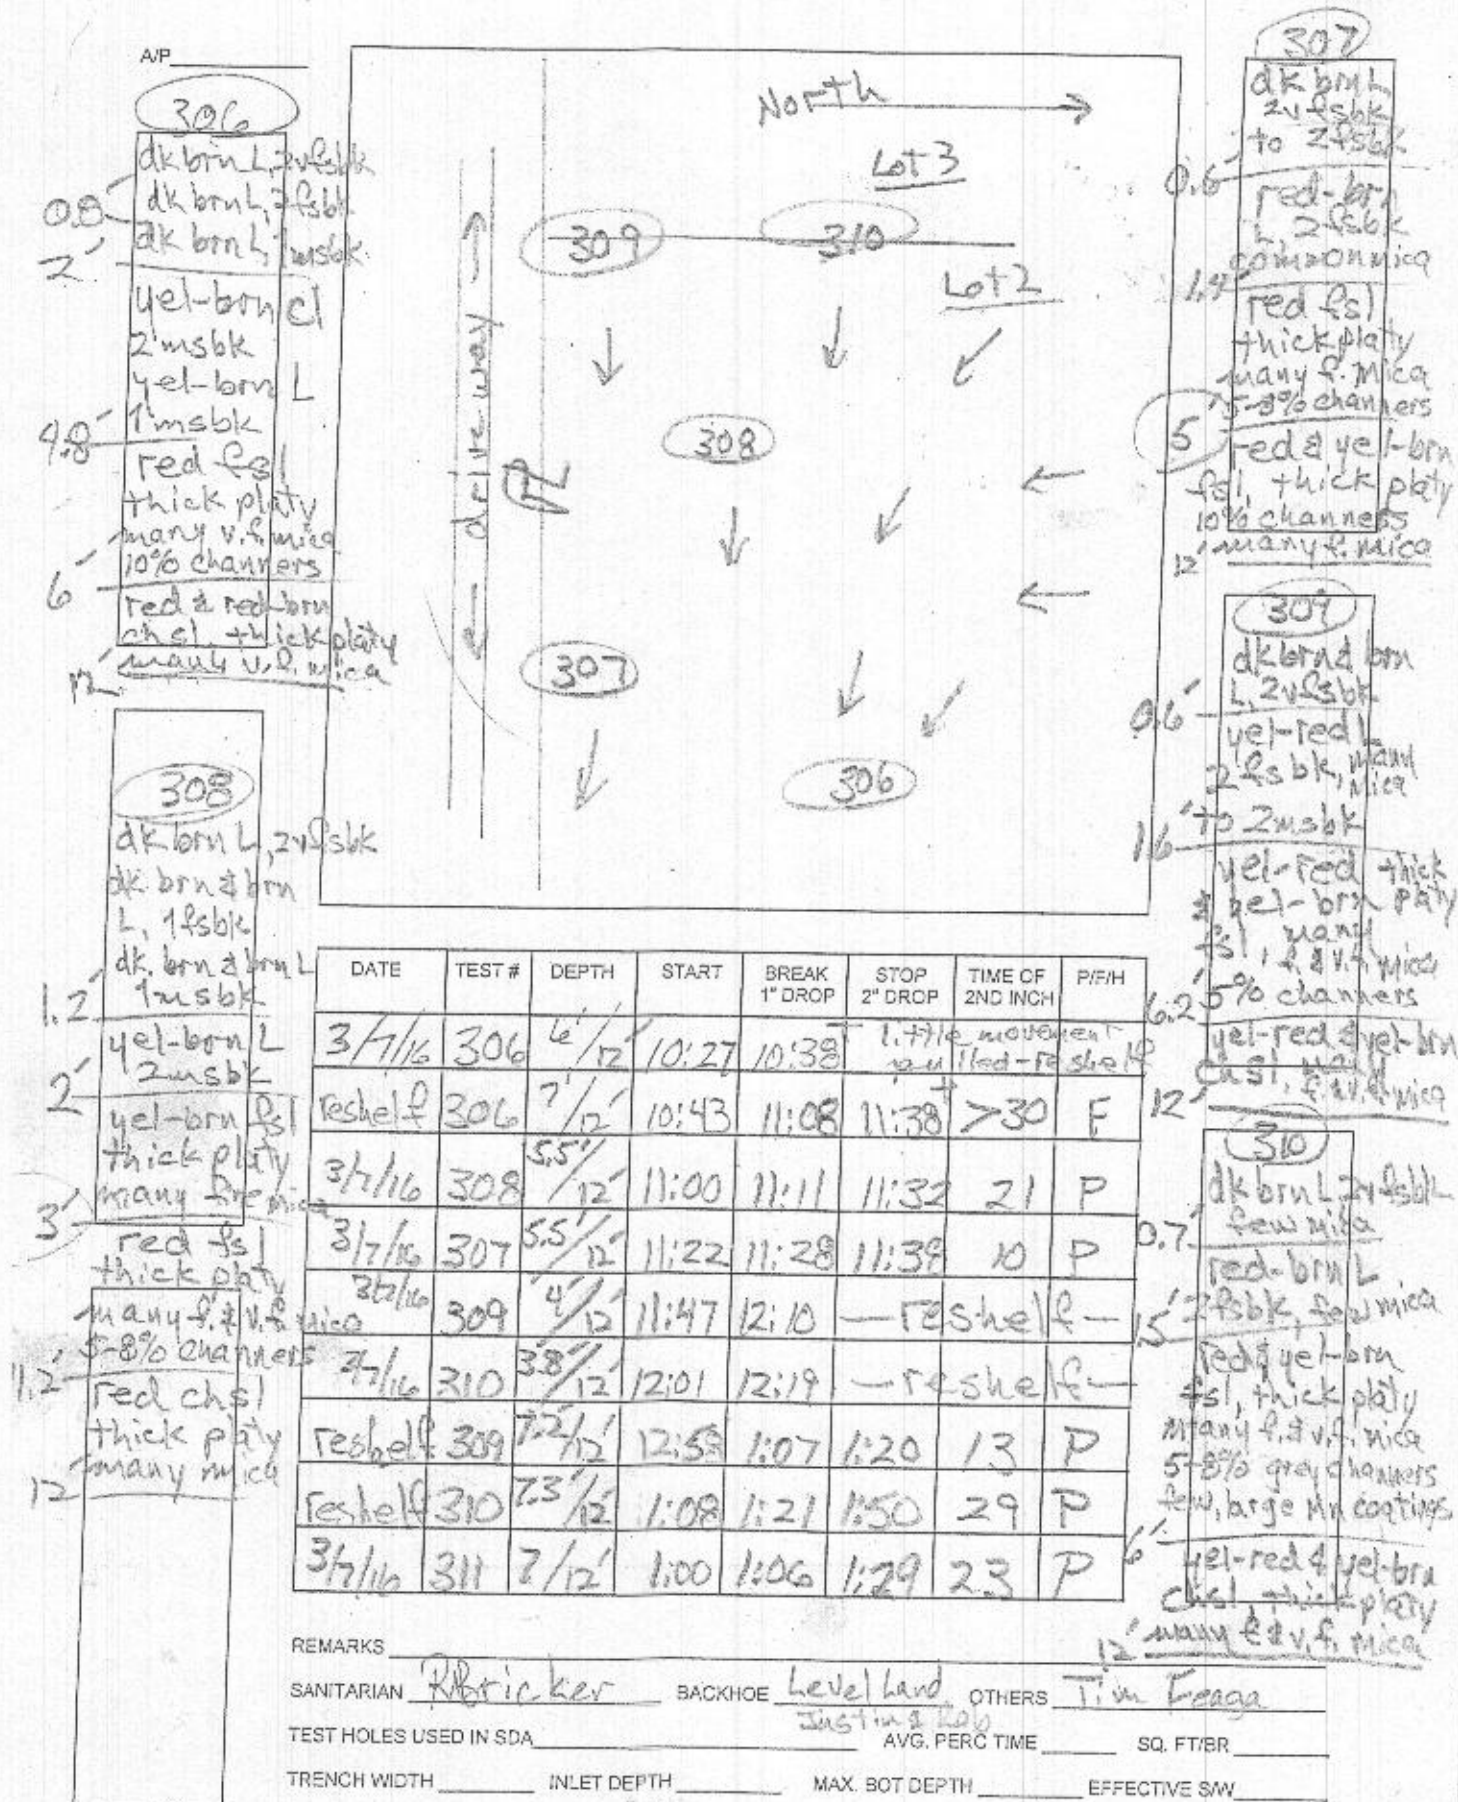 A/P
306
dk brn L, 2vfsbk
dk brn L, 2fsbk
0.8'
dk brn L, 1msbk
2'
yel-brn cl
2msbk
yel-brn L
1msbk
4.8'
red fsl
thick platy
many v.f. mica
10% channers
6'
red & red-brn
chsl, thick platy
many v.f. mica
12'
308
dk brn L, 2vfsbk
dk brn & brn
L, 1fsbk
dk. brn & brn L
1msbk
1.2'
yel-brn L
2msbk
2'
yel-brn fsl
thick platy
many fine mica
3'
red fsl
thick platy
many f. & v.f. mica
5-8% channers
11.2'
red chsl
thick platy
many mica
12'
North
Lot 3
309
310
Lot 2
308
driveway
307
306
307
dk brn L
2vfsbk
to 2fsbk
0.6'
red-brn
L, 2fsbk
common mica
1.4'
red fsl
thick platy
many f. mica
5-8% channers
5'
red & yel-brn
fsl, thick platy
10% channers
many f. mica
12'
309
dk brn & brn
L, 2vfsbk
0.6'
yel-red L
2fsbk, many
mica
to 2msbk
1.6'
yel-red thick
& yel-brn platy
fsl, many
f. & v.f. mica
5% channers
6.2'
yel-red & yel-brn
chsl, many
f. & v.f. mica
12'
310
dk brn L 2vfsbk
few mica
0.7'
red-brn L
2fsbk, few mica
1.5'
red & yel-brn
fsl, thick platy
many f. & v.f. mica
5-8% grey channers
few, large Mn coatings
6'
yel-red & yel-brn
chsl, thick platy
many f & v.f. mica
12'
DATE TEST # DEPTH START BREAK 1" DROP STOP 2" DROP TIME OF 2ND INCH P/F/H
3/7/16 306 6'/12' 10:27 10:38 little movement pulled-reshelf
reshelf 306 7'/12' 10:43 11:08 11:38+ >30 F
3/7/16 308 5.5'/12' 11:00 11:11 11:32 21 P
3/7/16 307 5.5'/12' 11:22 11:28 11:38 10 P
3/7/16 309 4'/12' 11:47 12:10 —reshelf—
3/7/16 310 3.8'/12' 12:01 12:19 —reshelf—
reshelf 309 7.2'/12' 1:07 1:20 13 P
reshelf 310 7.3'/12' 1:08 1:21 1:50 29 P
3/7/16 311 7/12' 1:00 1:06 1:29 23 P
REMARKS
SANITARIAN R Bricker BACKHOE Level Land OTHERS Tim Feaga
Justin & Rob
TEST HOLES USED IN SDA AVG. PERC TIME SQ. FT/BR
TRENCH WIDTH INLET DEPTH MAX. BOT DEPTH EFFECTIVE S/W